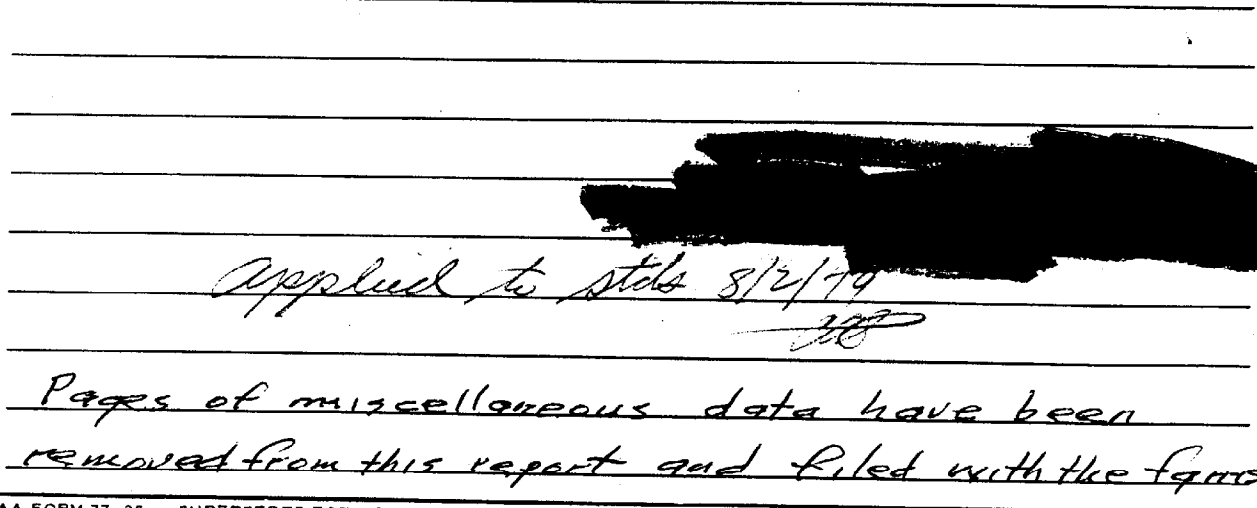 applied to stds 8/2/79
Pages of miscellaneous data have been
removed from this report and filed with the
FORM 77